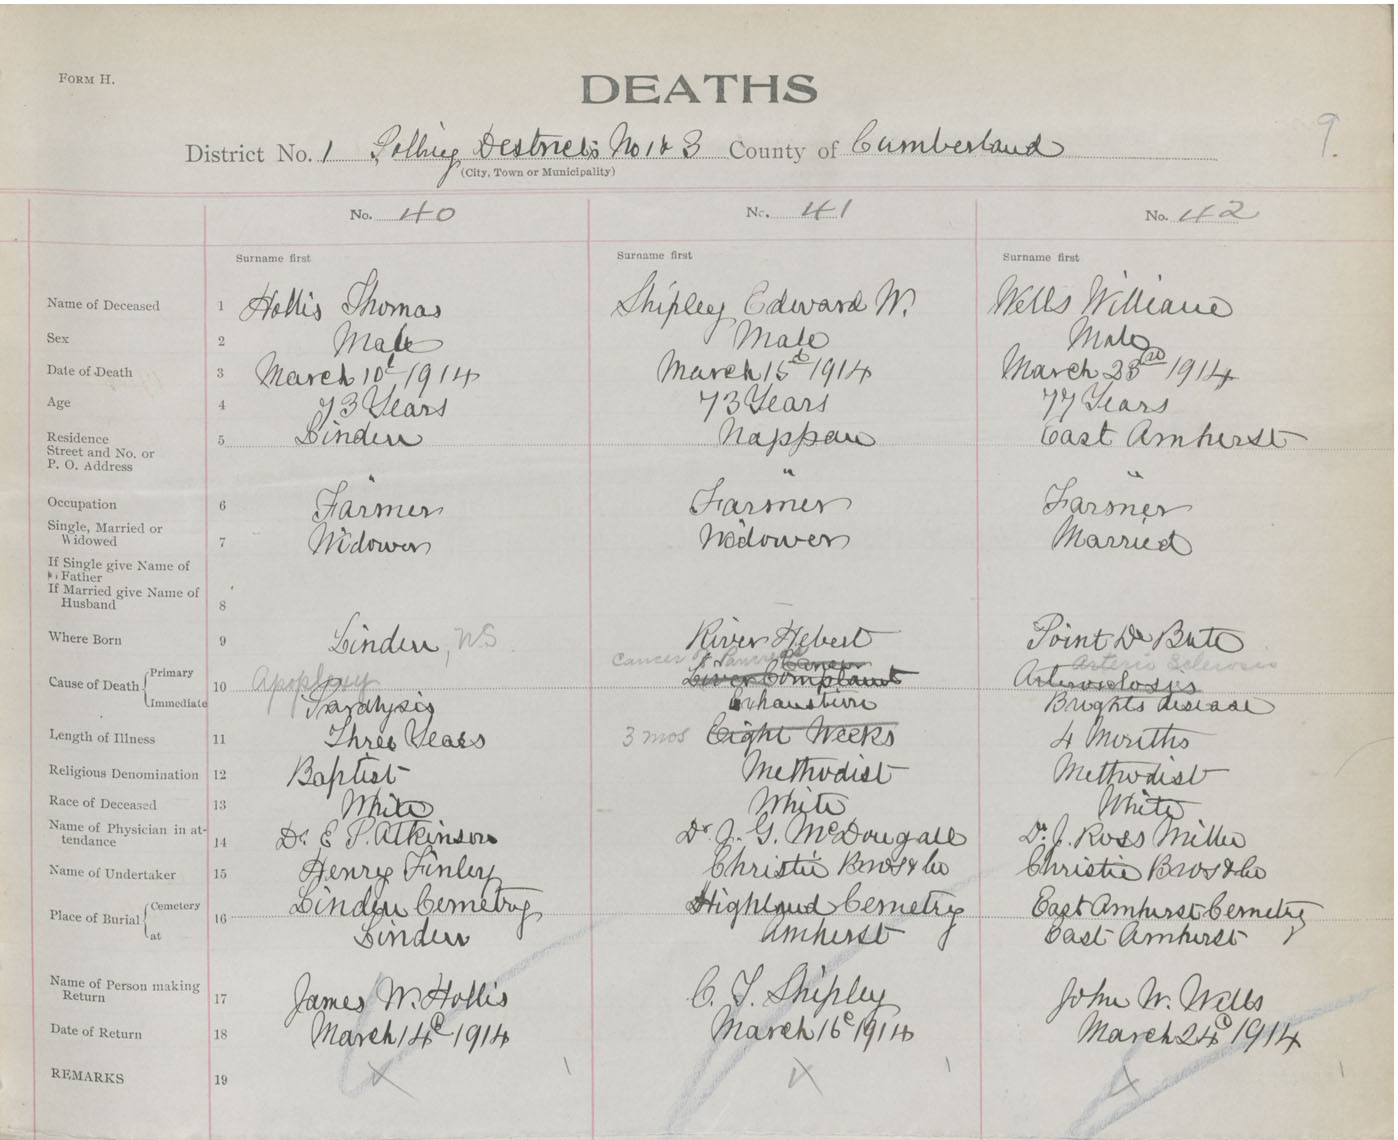 FORM H.
DEATHS
9.
District No. 1 Polling Districts No 1 & 3 County of Cumberland
(City, Town or Municipality)
No. 40 No. 41 No. 42
Surname first Surname first Surname first
Name of Deceased 1 Hollis Thomas Shipley Edward W. Wells William
Sex 2 Male Male Male
Date of Death 3 March 10t 1914 March 15t 1914 March 23rd 1914
Age 4 73 Years 73 Years 77 Years
Residence 5 Linden Nappan East Amherst
Street and No. or
P. O. Address " "
Occupation 6 Farmer Farmer Farmer
Single, Married or
Widowed 7 Widower Widower Married
If Single give Name of
Father
If Married give Name of
Husband 8
Where Born 9 Linden, N.S. River Hebert Point De Bute
Cancer of Pancreas Cancer Arterio Sclerosis
Cause of Death Primary 10 Apoplexy Liver Complaint Arteriosclosis
Immediate Paralysis Exhaustion Brights disease
Length of Illness 11 Three Years 3 mos Eight Weeks 4 Months
Religious Denomination 12 Baptist Methodist Methodist
Race of Deceased 13 White White White
Name of Physician in at-
tendance 14 Dr. E P. Atkinson Dr J. G. McDougall Dr. J. Ross Miller
Name of Undertaker 15 Henry Finley Christie Bros & Co Christie Bros & Co
Place of Burial Cemetery 16 Linden Cemetry Highland Cemetry East Amherst Cemetry
at Linden Amherst East Amherst
Name of Person making
Return 17 James W. Hollis C. T. Shipley John W. Wells
Date of Return 18 March 14t 1914 March 16t 1914 March 24t 1914
REMARKS 19 x x x